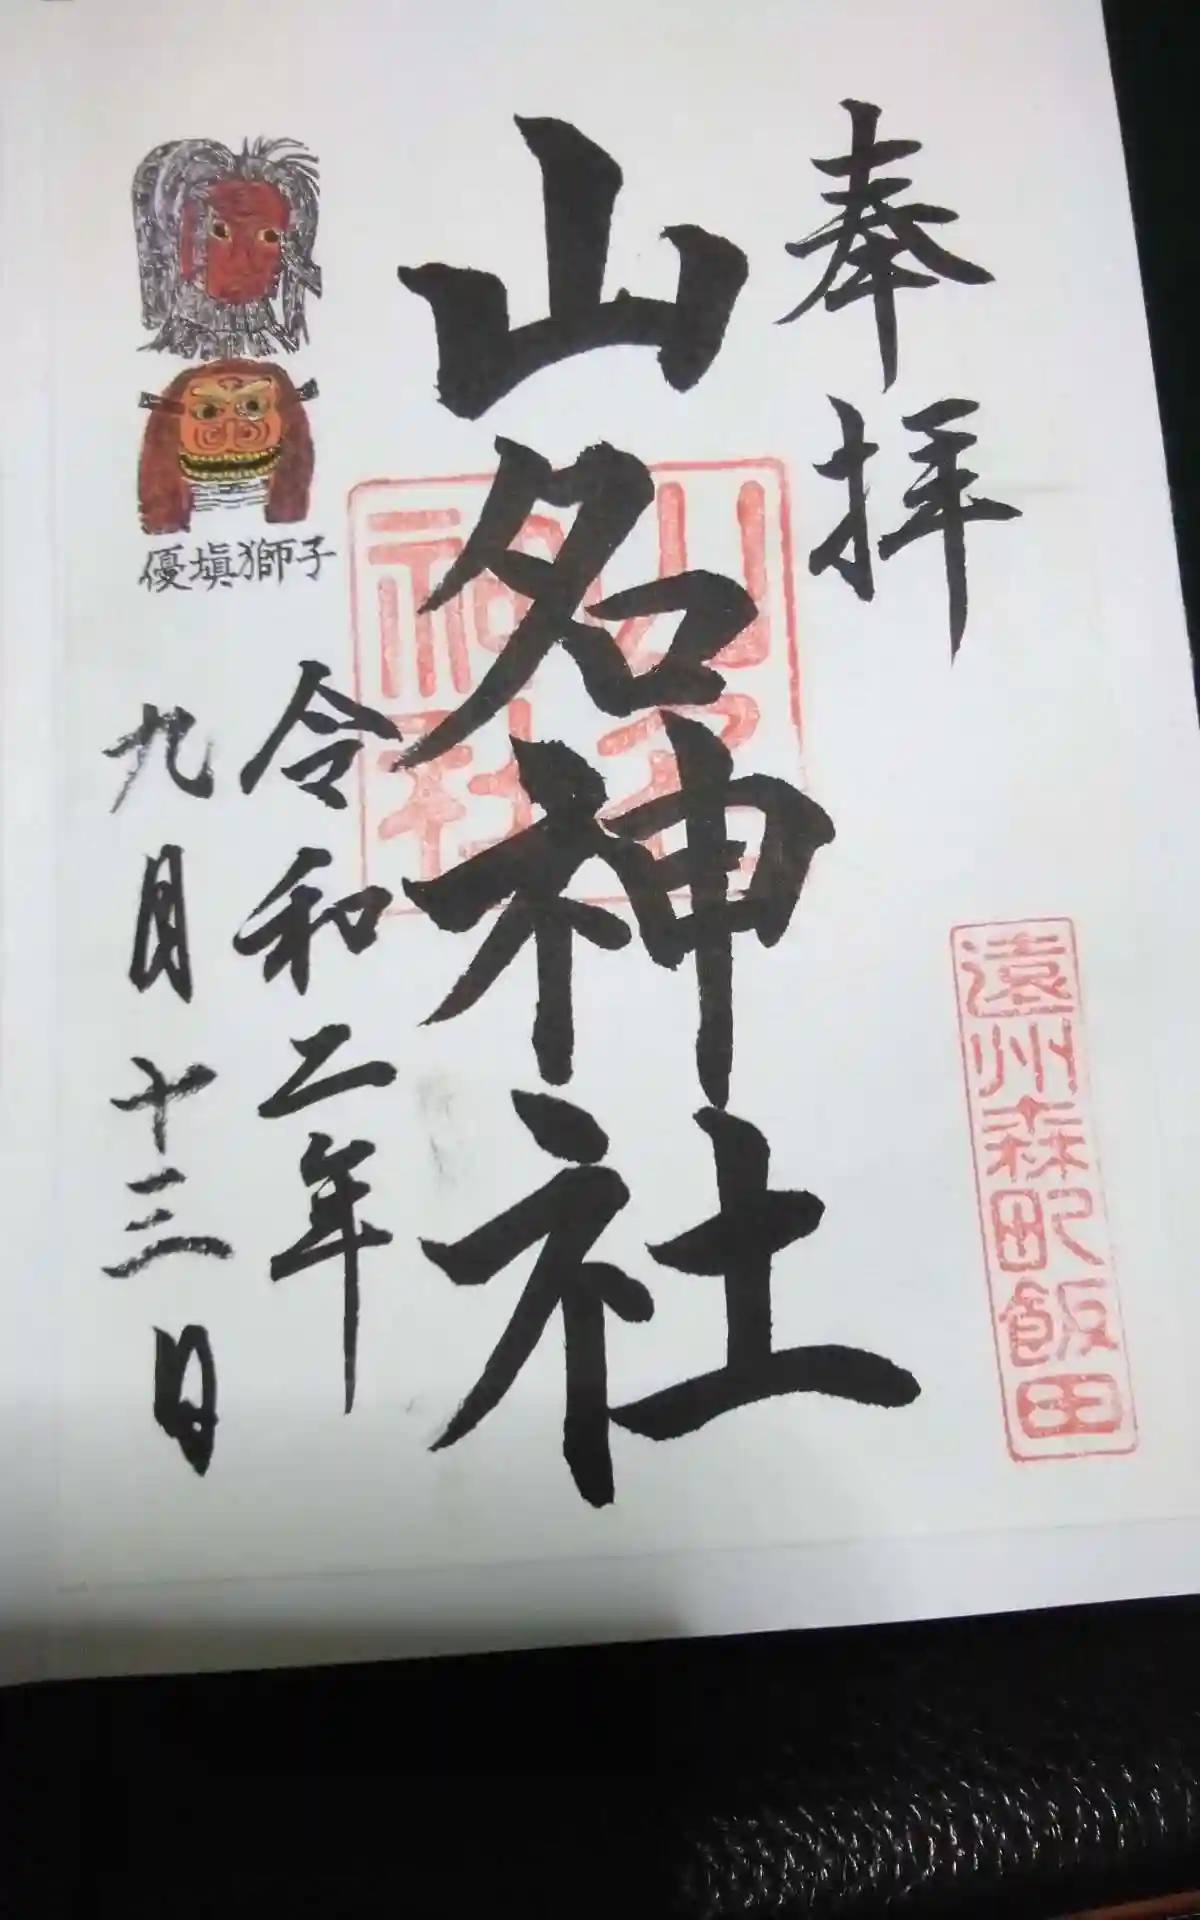 奉拝
遠州森町飯田
山名神社
山名神社
令和二年
九月十三日
優塡獅子